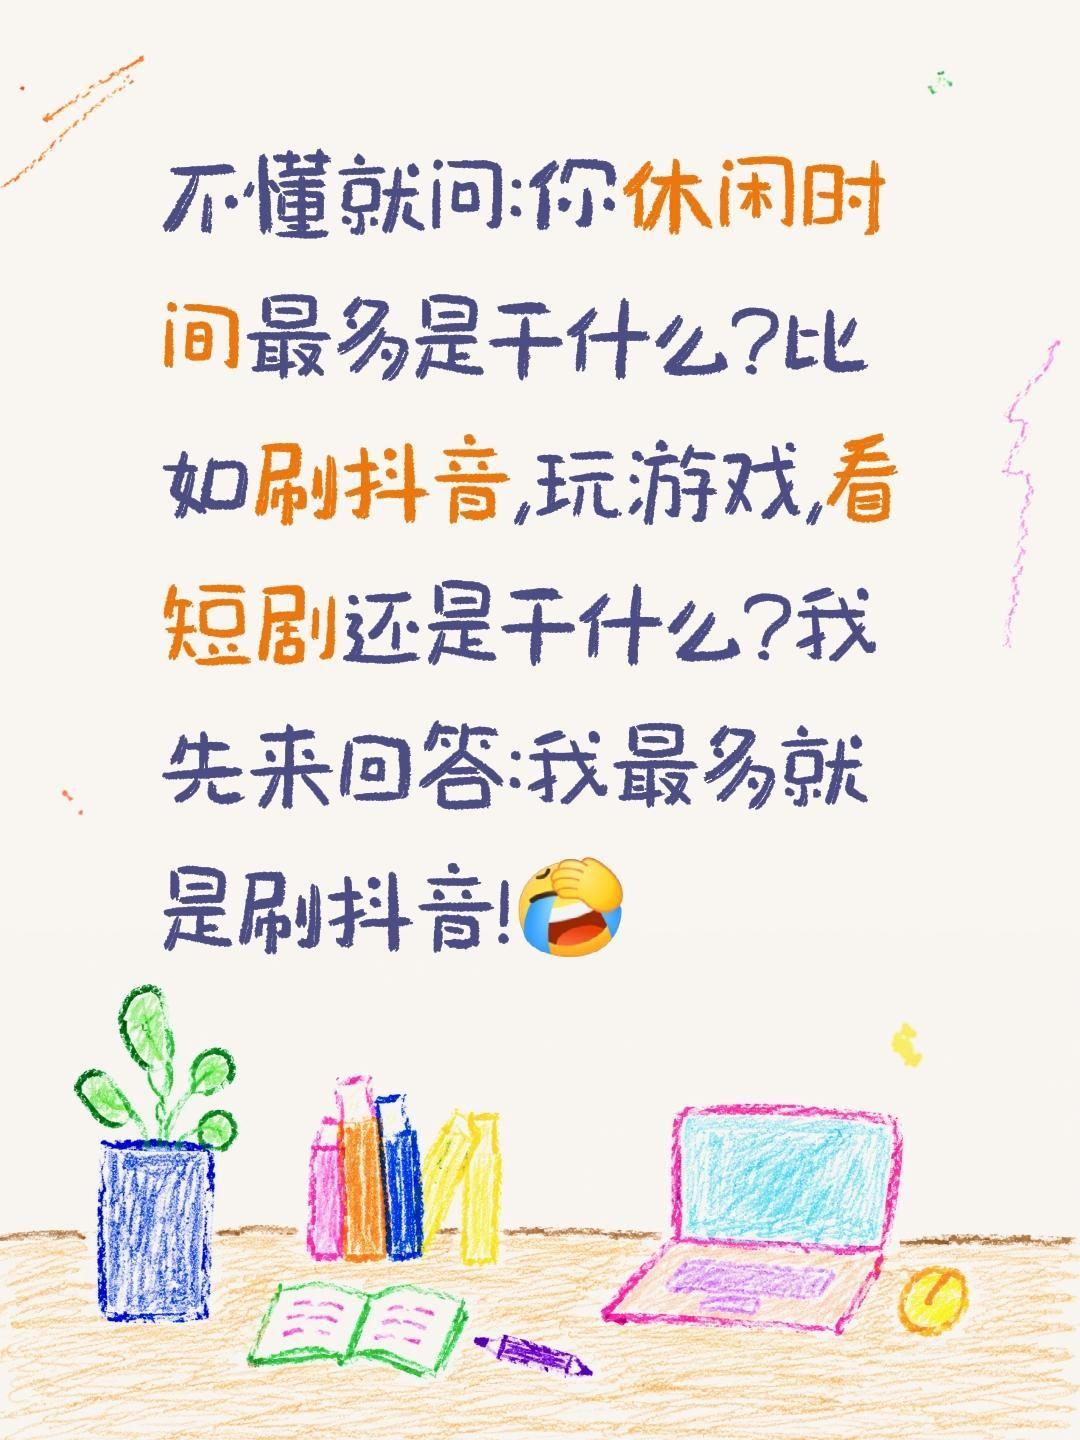 不懂就问:你休闲时
间最多是干什么?比
如刷抖音,玩游戏,看
短剧还是干什么?我
先来回答:我最多就
是刷抖音!🤣